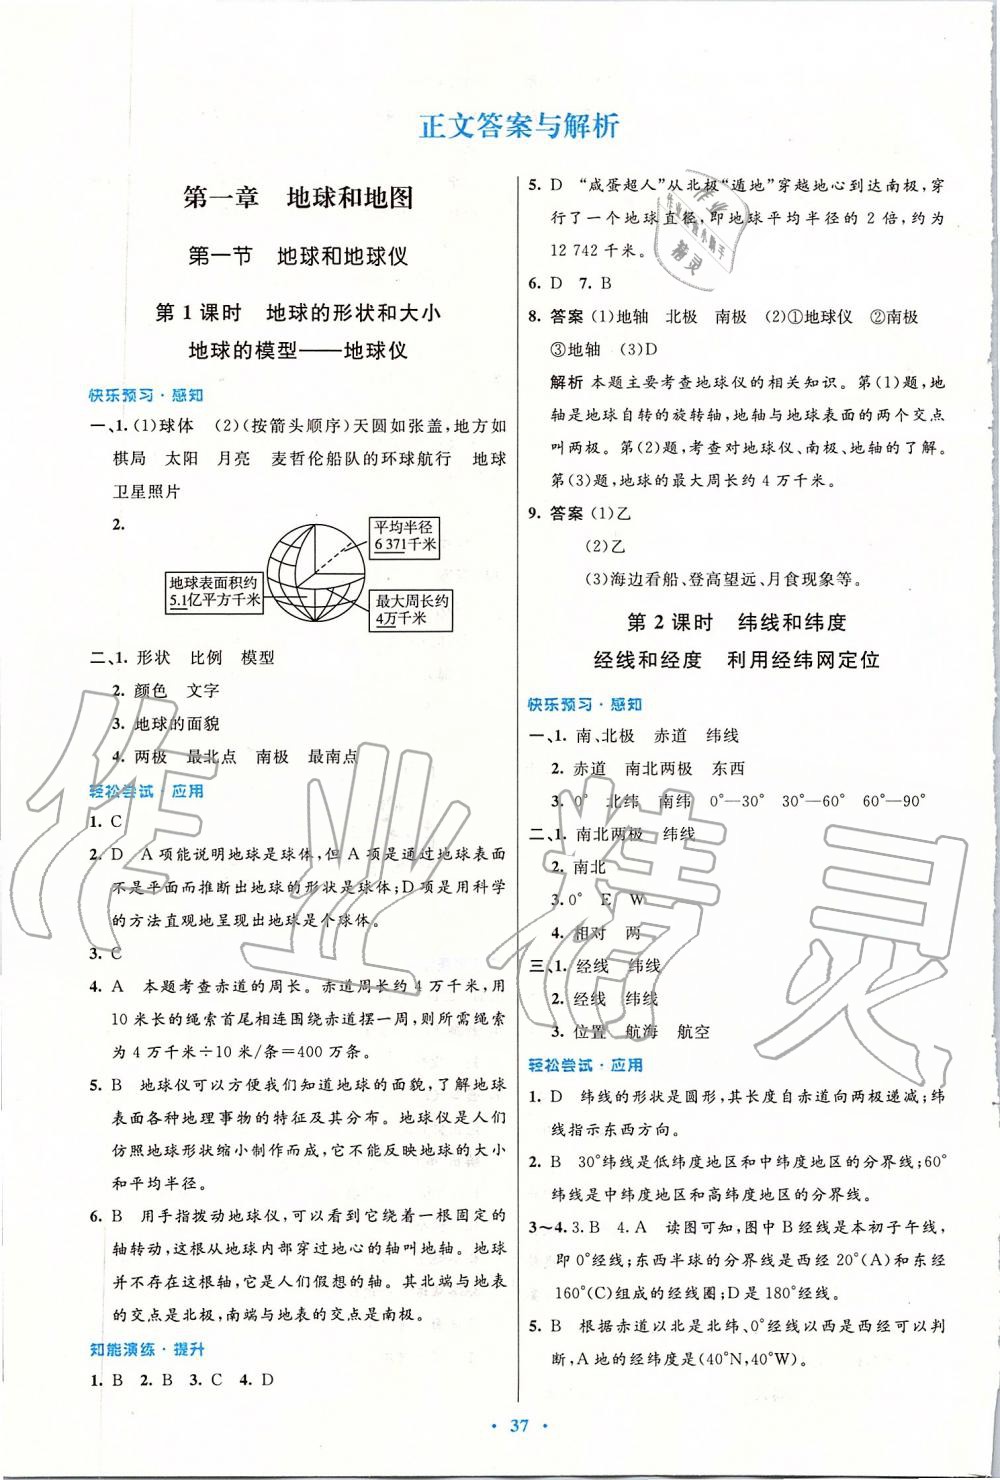 正文答案与解析
第一章 地球和地图
第一节 地球和地球仪
第1课时 地球的形状和大小
地球的模型——地球仪
快乐预习·感知
一、1. (1)球体 (2)(按箭头顺序)天圆如张盖,地方如
棋局 太阳 月亮 麦哲伦船队的环球航行 地球
卫星照片
2.
平均半径
6 371千米
地球表面积约
5.1亿平方千米
最大周长约
4万千米
二、1. 形状 比例 模型
2. 颜色 文字
3. 地球的面貌
4. 两极 最北点 南极 最南点
轻松尝试·应用
1. C
2. D A项能说明地球是球体,但A项是通过地球表面
不是平面而推断出地球的形状是球体;D项是用科学
的方法直观地呈现出地球是个球体。
3. C
4. A 本题考查赤道的周长。赤道周长约4万千米,用
10米长的绳索首尾相连围绕赤道摆一周,则所需绳索
为4万千米÷10米/条=400万条。
5. B 地球仪可以方便我们知道地球的面貌,了解地球
表面各种地理事物的特征及其分布。地球仪是人们
仿照地球形状缩小制作而成,它不能反映地球的大小
和平均半径。
6. B 用手指拨动地球仪,可以看到它绕着一根固定的
轴转动,这根从地球内部穿过地心的轴叫地轴。地球
并不存在这根轴,它是人们假想的轴。其北端与地表
的交点是北极,南端与地表的交点是南极。
知能演练·提升
1. B 2. B 3. C 4. D
5. D “咸蛋超人”从北极“遁地”穿越地心到达南极,穿
行了一个地球直径,即地球平均半径的2倍,约为
12 742千米。
6. D 7. B
8. 答案 (1)地轴 北极 南极 (2)①地球仪 ②南极
③地轴 (3)D
解析 本题主要考查地球仪的相关知识。第(1)题,地
轴是地球自转的旋转轴,地轴与地球表面的两个交点
叫两极。第(2)题,考查对地球仪、南极、地轴的了解。
第(3)题,地球的最大周长约4万千米。
9. 答案 (1)乙
(2)乙
(3)海边看船、登高望远、月食现象等。
第2课时 纬线和纬度
经线和经度 利用经纬网定位
快乐预习·感知
一、1. 南、北极 赤道 纬线
2. 赤道 南北两极 东西
3. 0° 北纬 南纬 0°—30° 30°—60° 60°—90°
二、1. 南北两极 纬线
2. 南北
3.0° E W
4. 相对 两
三、1. 经线 纬线
2. 经线 纬线
3. 位置 航海 航空
轻松尝试·应用
1. D 纬线的形状是圆形,其长度自赤道向两极递减;纬
线指示东西方向。
2. B 30°纬线是低纬度地区和中纬度地区的分界线;60°
纬线是中纬度地区和高纬度地区的分界线。
3~4. 3. B 4. A 读图可知,图中B经线是本初子午线,
即0°经线;东西半球的分界线是西经20°(A)和东经
160°(C)组成的经线圈;D是180°经线。
5. B 根据赤道以北是北纬、0°经线以西是西经可以判
断,A地的经纬度是(40°N,40°W)。
• 37 •
作业精灵